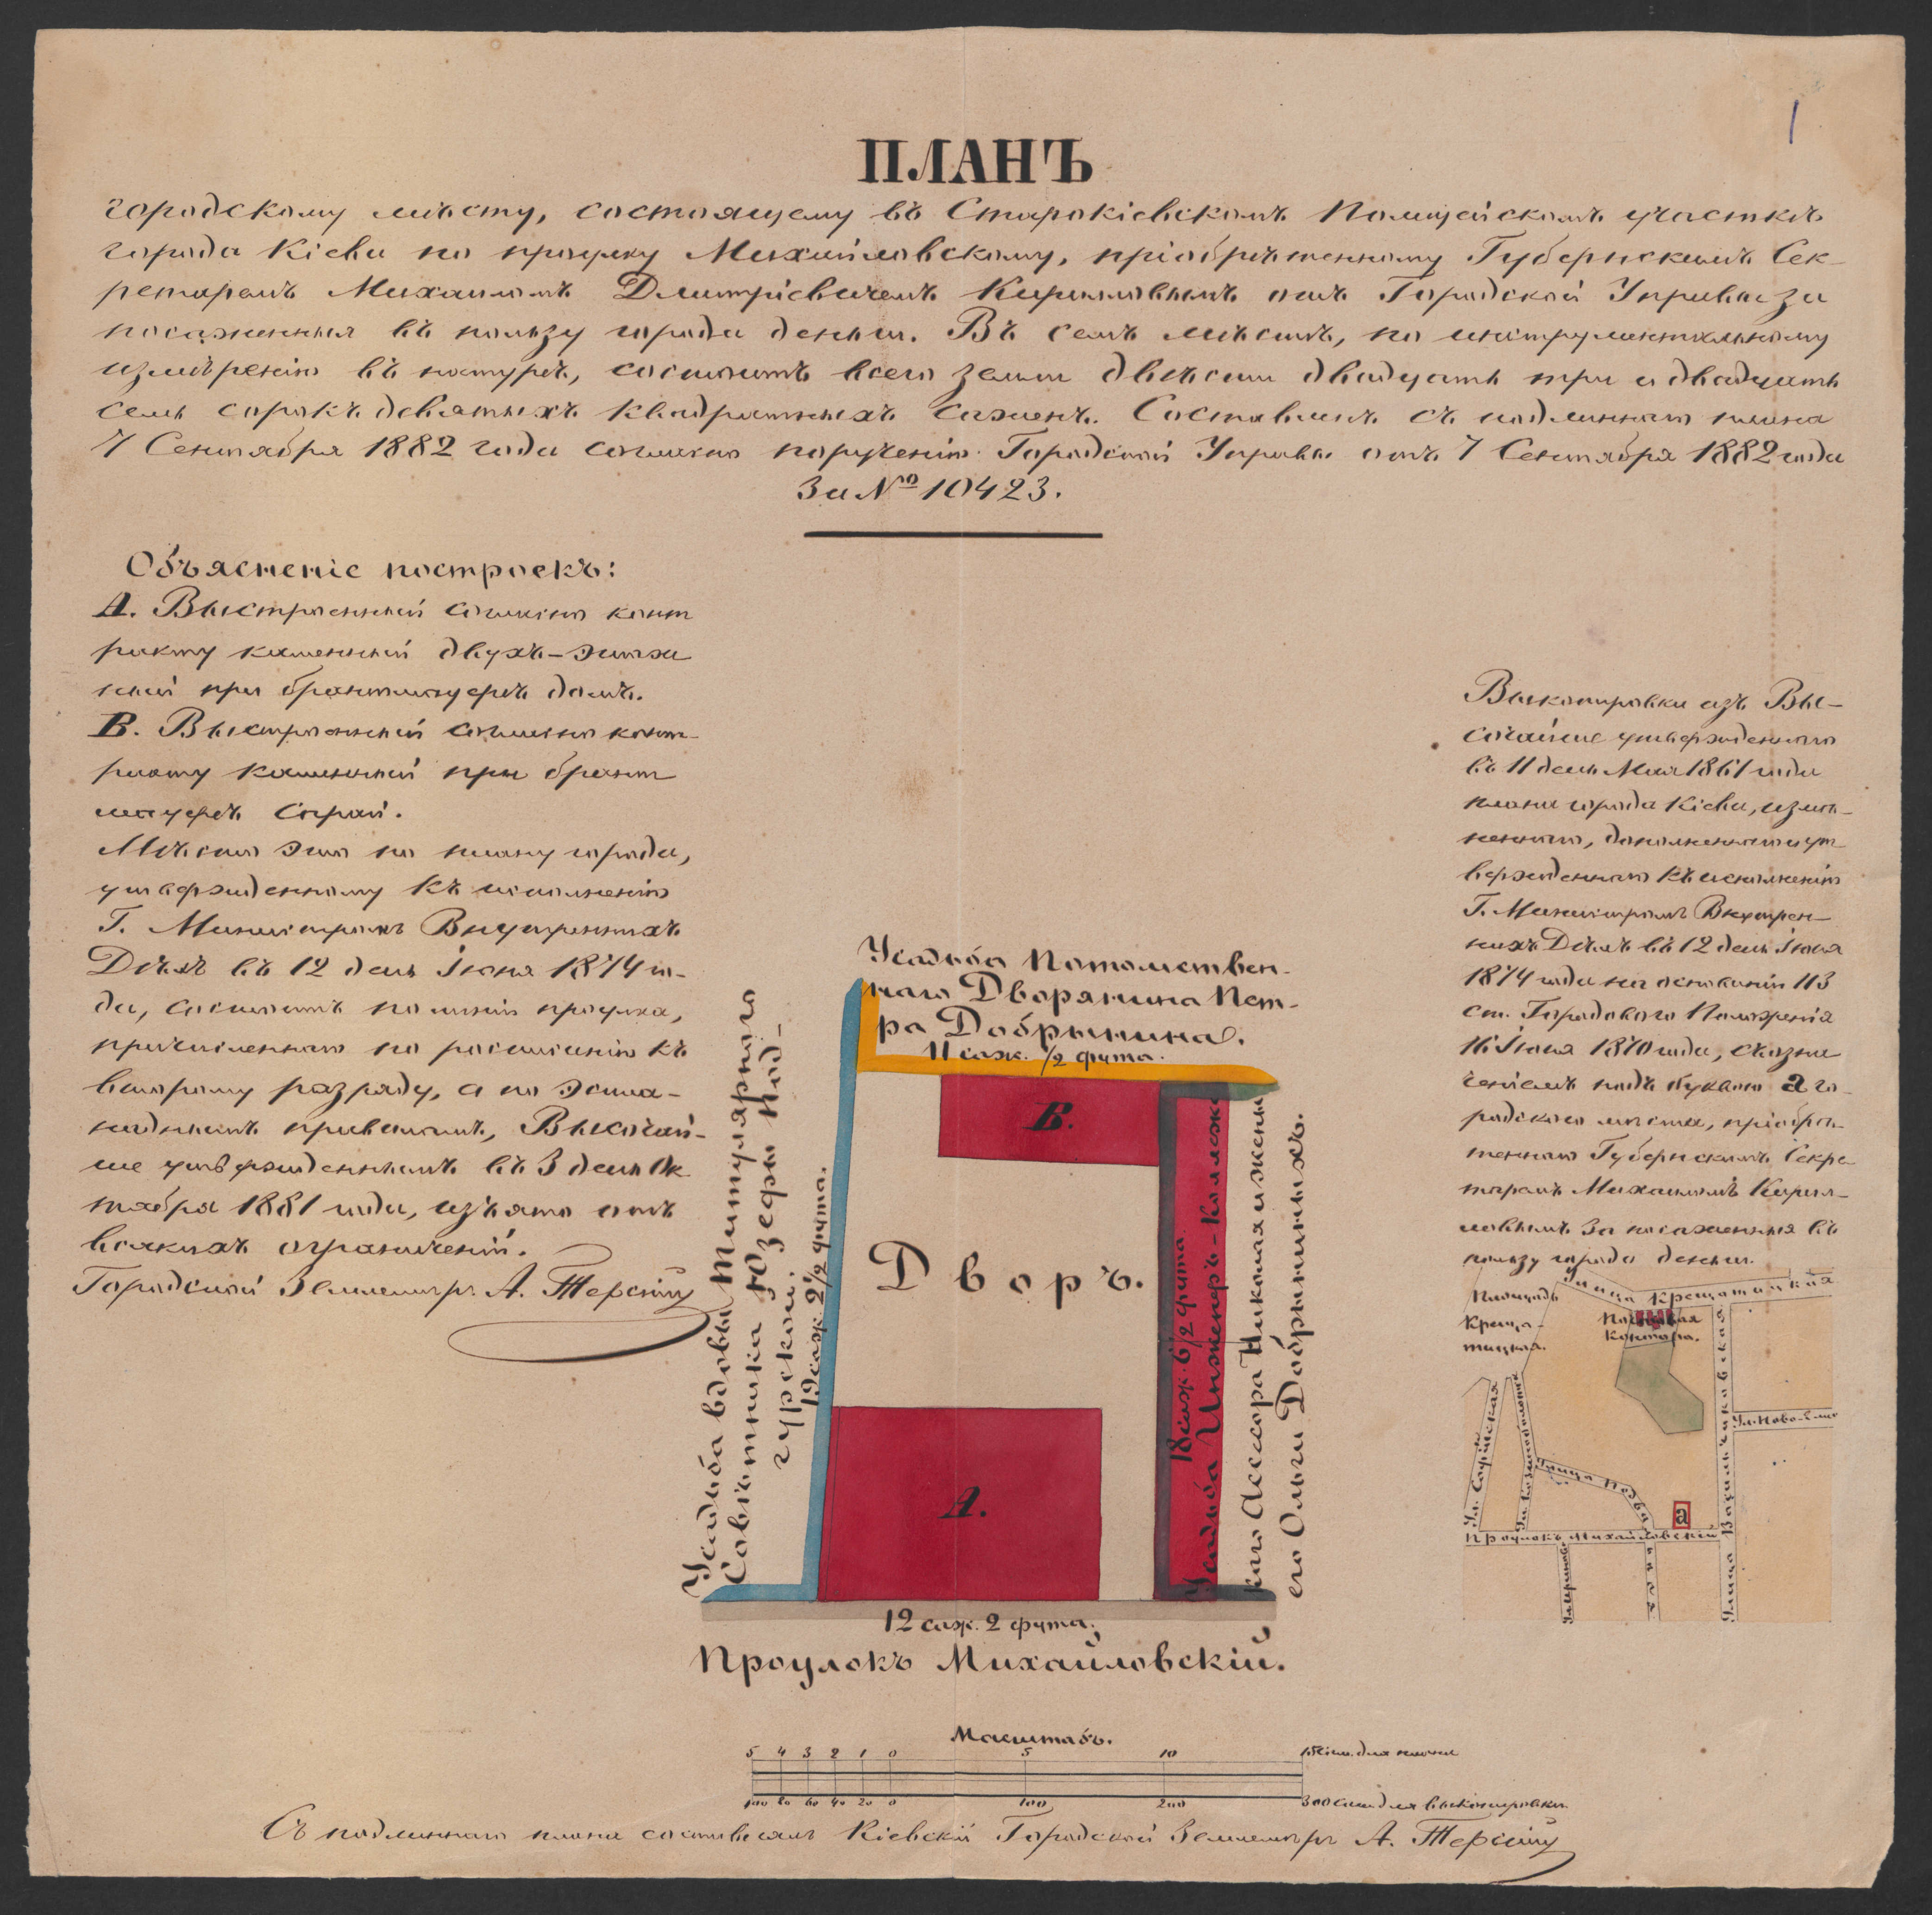 1
ПЛАНЪ
городскому мѣсту, состоящему въ Старокіевскомъ Полицейскомъ участкѣ
города Кіева по проулку Михайловскому, пріобрѣтенному Губернскимъ Сек-
ретаремъ Михаиломъ Дмитріевичемъ Кирилловымъ отъ Городской Управы за
посаженныя въ пользу города деньги. Въ семъ мѣстѣ, по инструментальному
измѣренію въ натурѣ, состоитъ всего земли двѣсти двадцать три и двадцать
семь сорокъ девятыхъ квадратныхъ сажень. Составленъ съ подлиннаго плана
7 Сентября 1882 года согласно порученію Городской Управы отъ 7 Сентября 1882 года
За № 10423.
Объясненіе построекъ:
А. Выстроенный согласно конт
ракту каменный двухъ-этаж
ный при брантмауерѣ домъ.
В. Выстроенный согласно конт-
ракту каменный при брант
мауерѣ сарай.
Мѣсто это по плану города,
утвержденному къ исполненію
Г. Министромъ Внутреннихъ
Дѣлъ въ 12 день Іюня 1874 го-
да, состоитъ по линіи проулка,
причисленнаго по росписанію къ
второму разряду, а по эспла-
наднымъ правиламъ, Высочай-
ше утвержденнымъ въ 3 день Ок
тября 1881 года, изъято отъ
всякихъ ограниченій.
Городской Землемѣръ А. Терскій
Выкопировка изъ Вы-
сочайше утвержденнаго
въ 11 день Мая 1861 года
плана города Кіева, измѣ-
неннаго, дополненнаго и ут-
вержденнаго къ исполненію
Г. Министромъ Внутрен-
нихъ Дѣлъ въ 12 день Іюня
1874 года на основаніи 113
ст. Городоваго Положенія
16 Іюня 1870 года, съ озна
ченіемъ подъ буквою а го-
родскаго мѣста, пріобрѣ-
теннаго Губернскимъ Секре
таремъ Михаиломъ Кирил-
ловымъ за посаженныя въ
пользу города деньги.
Усадьба Потомствен-
наго Дворянина Пет-
ра Добрынина.
11 саж. 1/2 фута.
Усадьба вдовы Титулярнаго
Совѣтника Юзефы Под-
гурской.
19 саж. 2 1/2 фута.
В.
Дворъ.
А.
18 саж. 6 1/2 фута
Усадьба Инженеръ-Коллежс
каго Ассесора Николая и жены
его Ольги Добрыниныхъ.
12 саж. 2 фута.
Проулокъ Михайловскій.
Улица Крещатицкая
Площадь
Креща-
тицкая.
Почтовая
Контора.
Ул. Софійская
Улица Васильчиковская
Ул. Ново-Е
а
Проулокъ Михайловскій
Масштабъ.
5 4 3 2 1 0 5 10 15 саж. для плана
100 80 60 40 20 0 100 200 300 саж. для выкопировки
Съ подлиннаго плана составлялъ Кіевскій Городской Землемѣръ А. Терскій